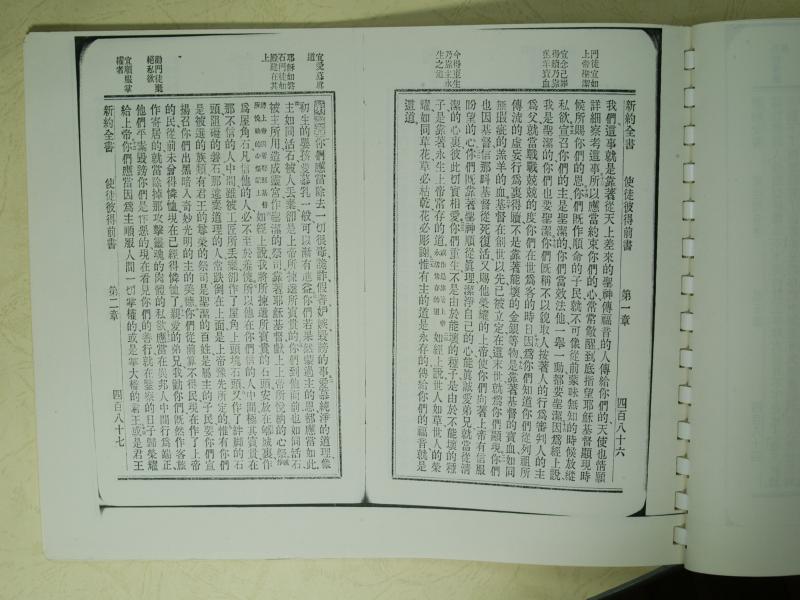 新約全書　使徒彼得前書　第一章　四百八十六
門徒宜如
上帝聖潔
宜念己罪
得贖乃靠
寶血
今得重生
乃靠主永
生之道
我們這事就是靠著從天上差來的聖神傳福音的人傳給你們的天使也情願
詳細察考這事所以應當約束你們的心常常儆醒到底指望耶穌基督顯現時
候所賜你們的恩你們旣作順命的子民就不可像從前蒙昧無知的時候放縱
私欲宣召你們的主是聖潔的你們當效法他一舉一動都要聖潔因爲經上說
我是聖潔的你們也要聖潔你們旣稱不以貌取人按著人的行爲審判人的主
爲父就當戰戰兢兢的度你們在世爲客的時日因爲你們知道你們從列祖所
傳流的虛妄行爲得贖不是靠著能壞的金銀等物是靠著基督的寶血如同
無瑕疵的羔羊的血基督在創世以先已被立定在這末世就爲你們顯現你們
也因基督信那叫基督從死復活又賜他榮耀的上帝使你們向著上帝有信服
盼望的心你們旣靠著聖神順從眞理潔淨自己的心能眞誠愛弟兄就當從清
潔的心裏彼此切實相愛你們重生不是由於能壞的種子是由於不能壞的種
子是靠著永生上帝常存的道如經上說世人如草世人的榮
耀如同草花草必枯乾花必彫謝惟有主的道是永存的傳給你們的福音就是
這道
宜愛慕眞
道
耶穌如磐
石門徒如
殿建在其
上
勸門徒棄
絕私欲
宜順服掌
權者
你們應當除去一切很毒詭詐假善妒嫉毀謗的事愛慕純淨的道理像
初生的嬰孩愛慕乳一般可以漸有進益你們若果然蒙過主的恩都應當如此
主如同活石被人丟棄卻是上帝所揀選所寶貴的你們到他面前也如同活石
被主所用造成靈宮作聖潔的祭司靠著耶穌基督獻上上帝所悅納的心祭
如經上說我將所揀選所寶貴的石頭安放在郇城裏作
爲屋角石凡信他的人必不至於羞愧所以他在你們信的人中間極其寶貴在
那不信的人中間雖被工匠所丟棄卻作了屋角上頭塊石頭又作了絆腳的石
頭阻礙的磐石那違棄道理的人常跌倒在上面是上帝預先所定的惟有你們
是被選的族類有君王的尊榮的祭司是聖潔的百姓是屬主的子民要你們宣
揚召你們出黑暗入奇妙光明的主的美德你們從前算不得民現在作了上帝
的民從前未曾得憐恤現在已經得憐恤了親愛的弟兄我勸你們旣然作客旅
作寄居的就當除掉那攻擊靈魂的肉體的私欲應當在異邦人中間行爲端正
他們平素毀謗你們是作惡的現在看見你們的善行就在鑒察的日子歸榮耀
給上帝你們應當因爲主順服人間一切掌權的或是掌大權的君王或是君王
新約全書　使徒彼得前書　第二章　四百八十七